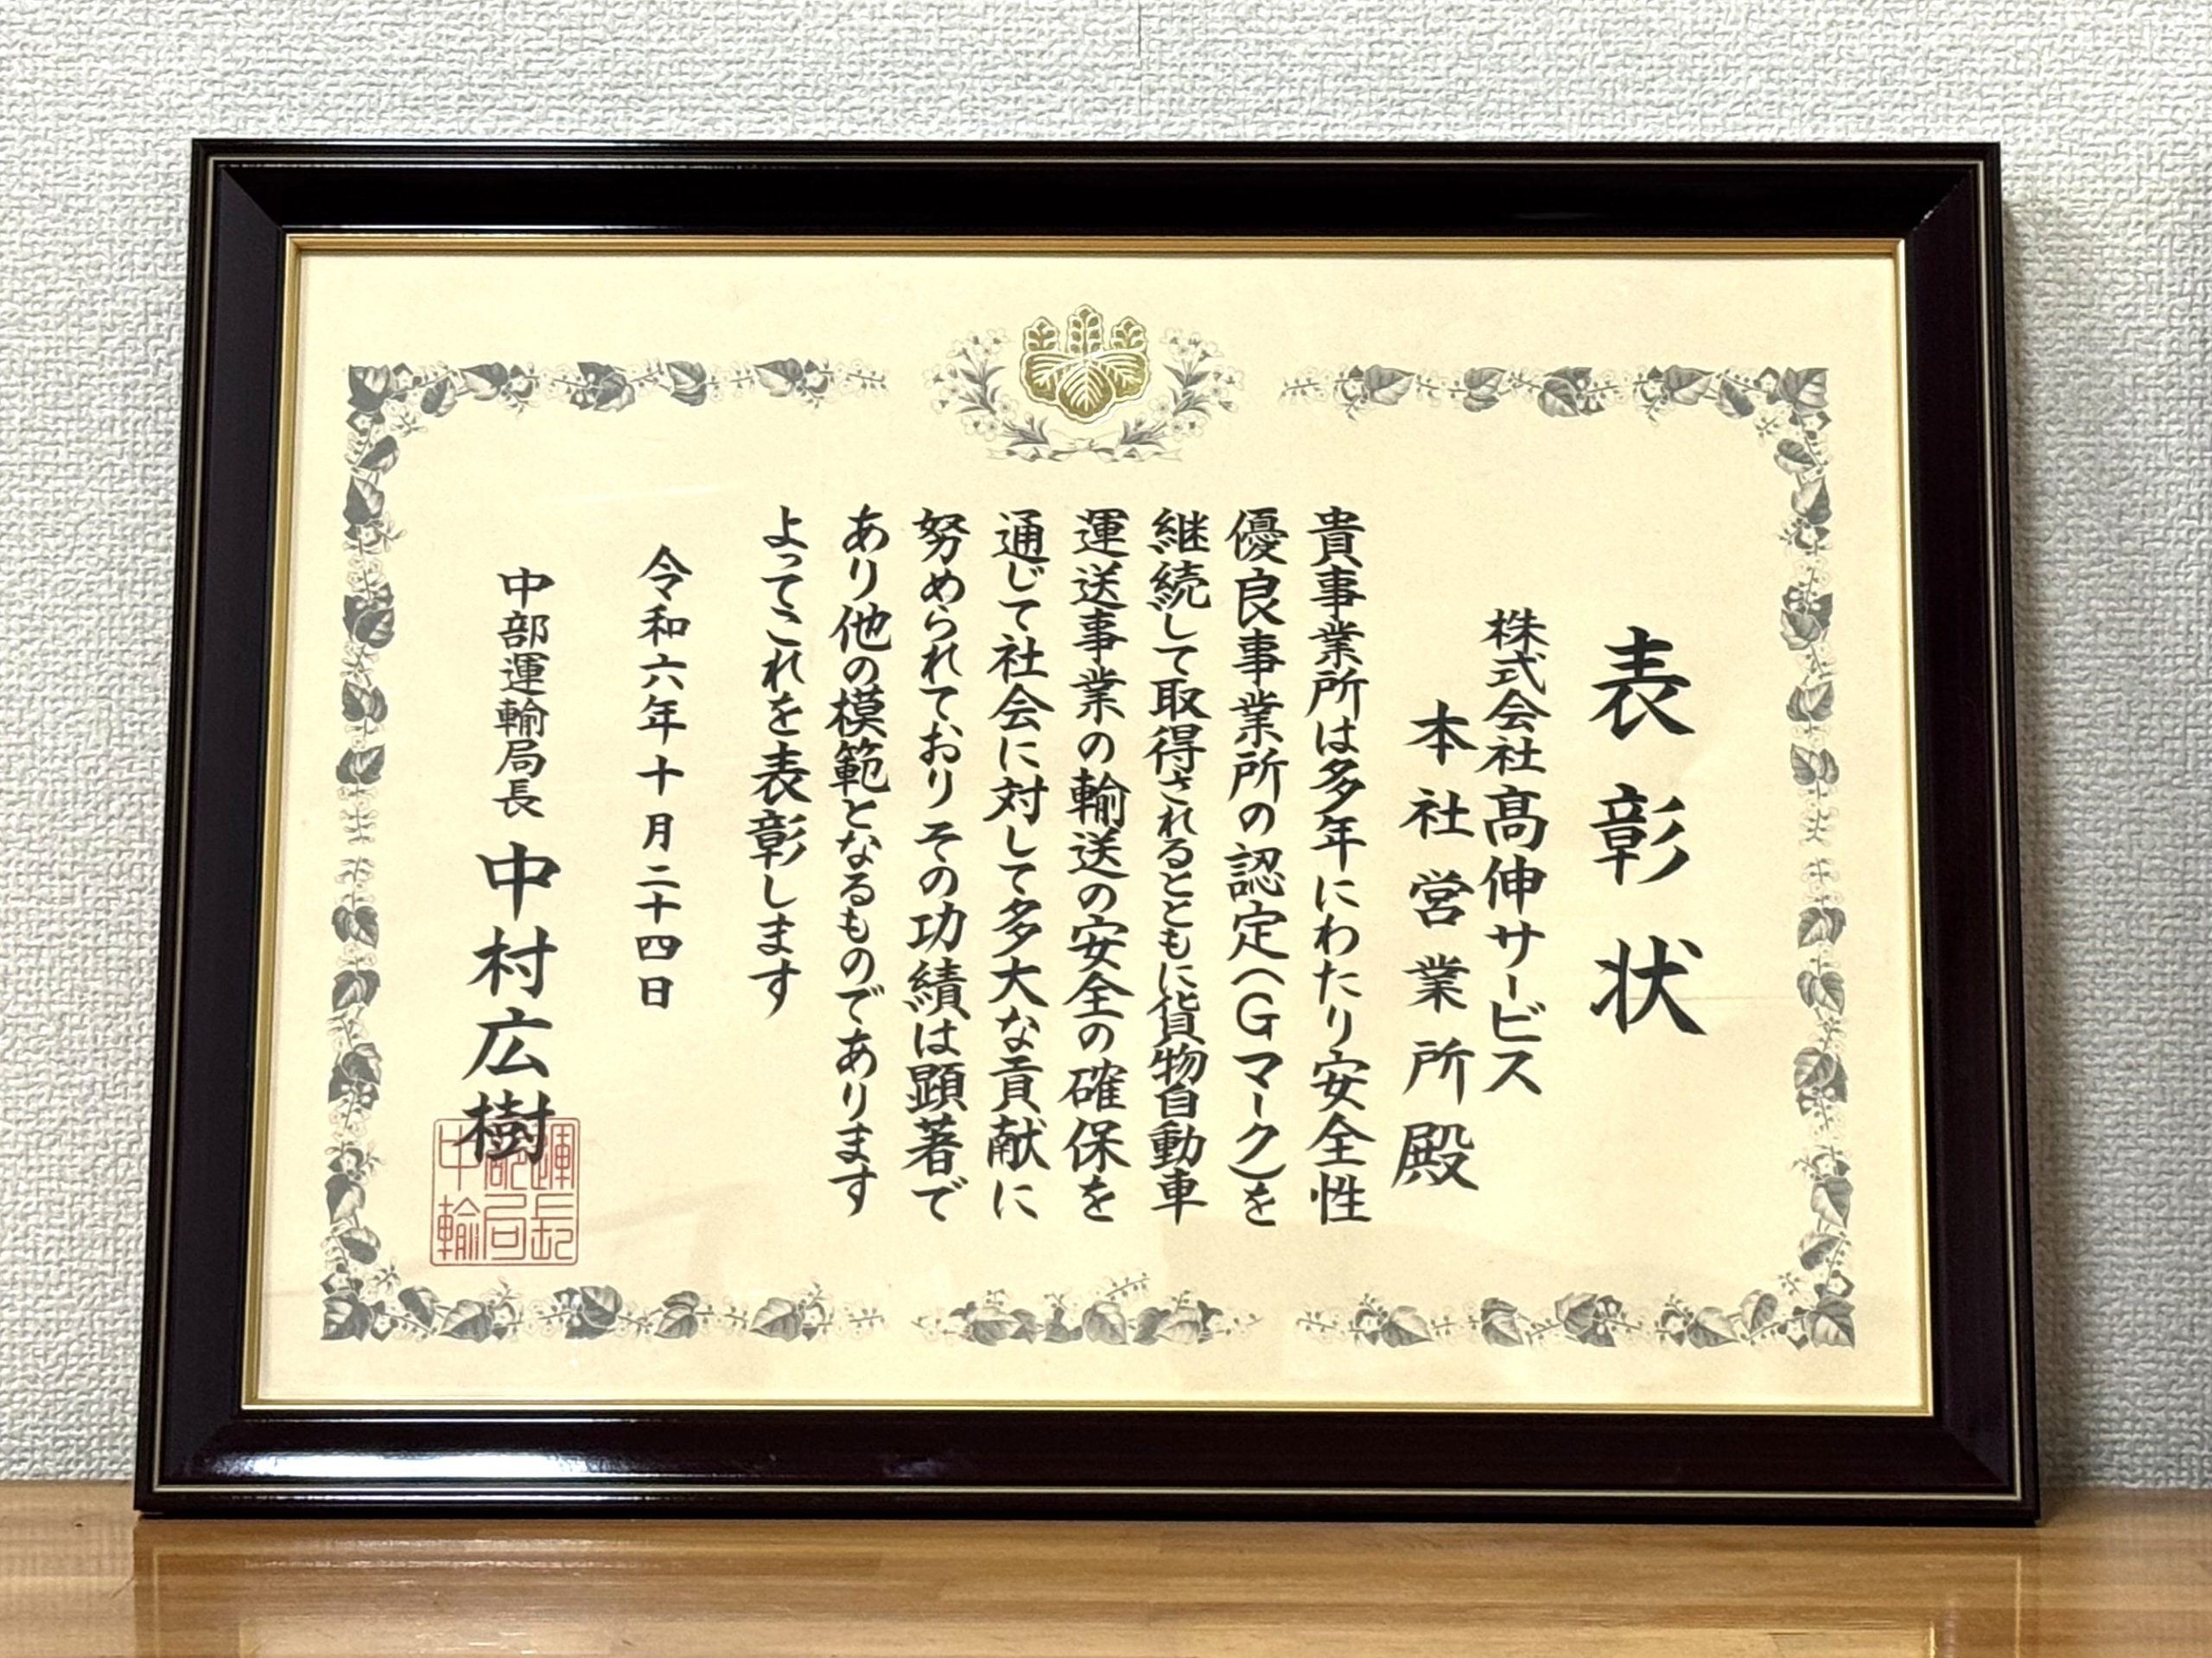 表彰状
株式会社髙伸サービス
本社営業所殿
貴事業所は多年にわたり安全性
優良事業所の認定(Gマーク)を
継続して取得されるとともに貨物自動車
運送事業の輸送の安全の確保を
通じて社会に対して多大な貢献に
努められておりその功績は顕著で
あり他の模範となるものであります
よってこれを表彰します
令和六年十月二十四日
中部運輸局長 中村広樹
中部運
輸局長